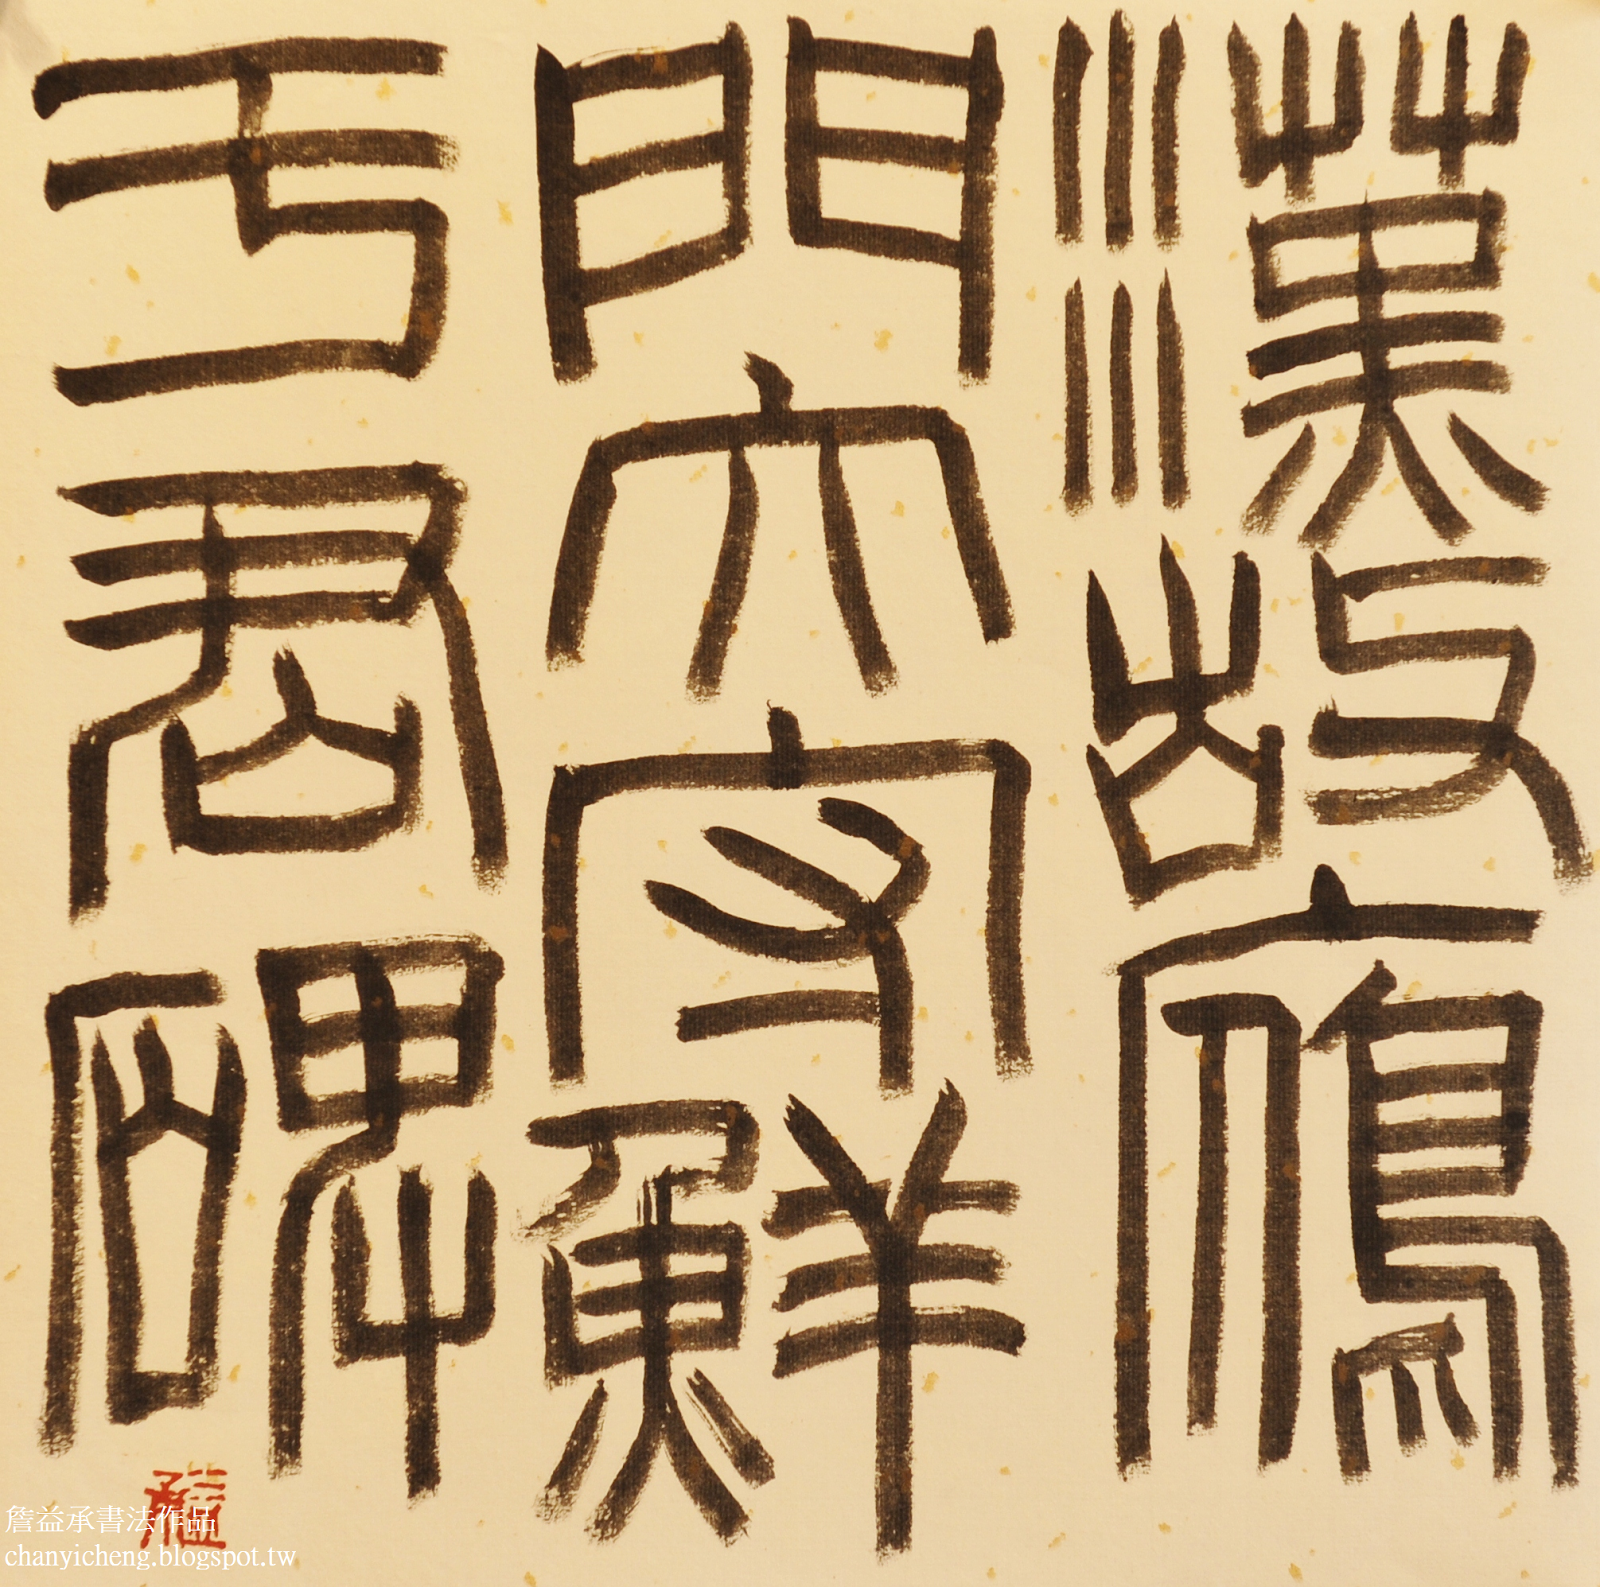 漢故鴈
門太守鮮
于君碑
益承
詹益承書法作品
chanyicheng.blogspot.tw